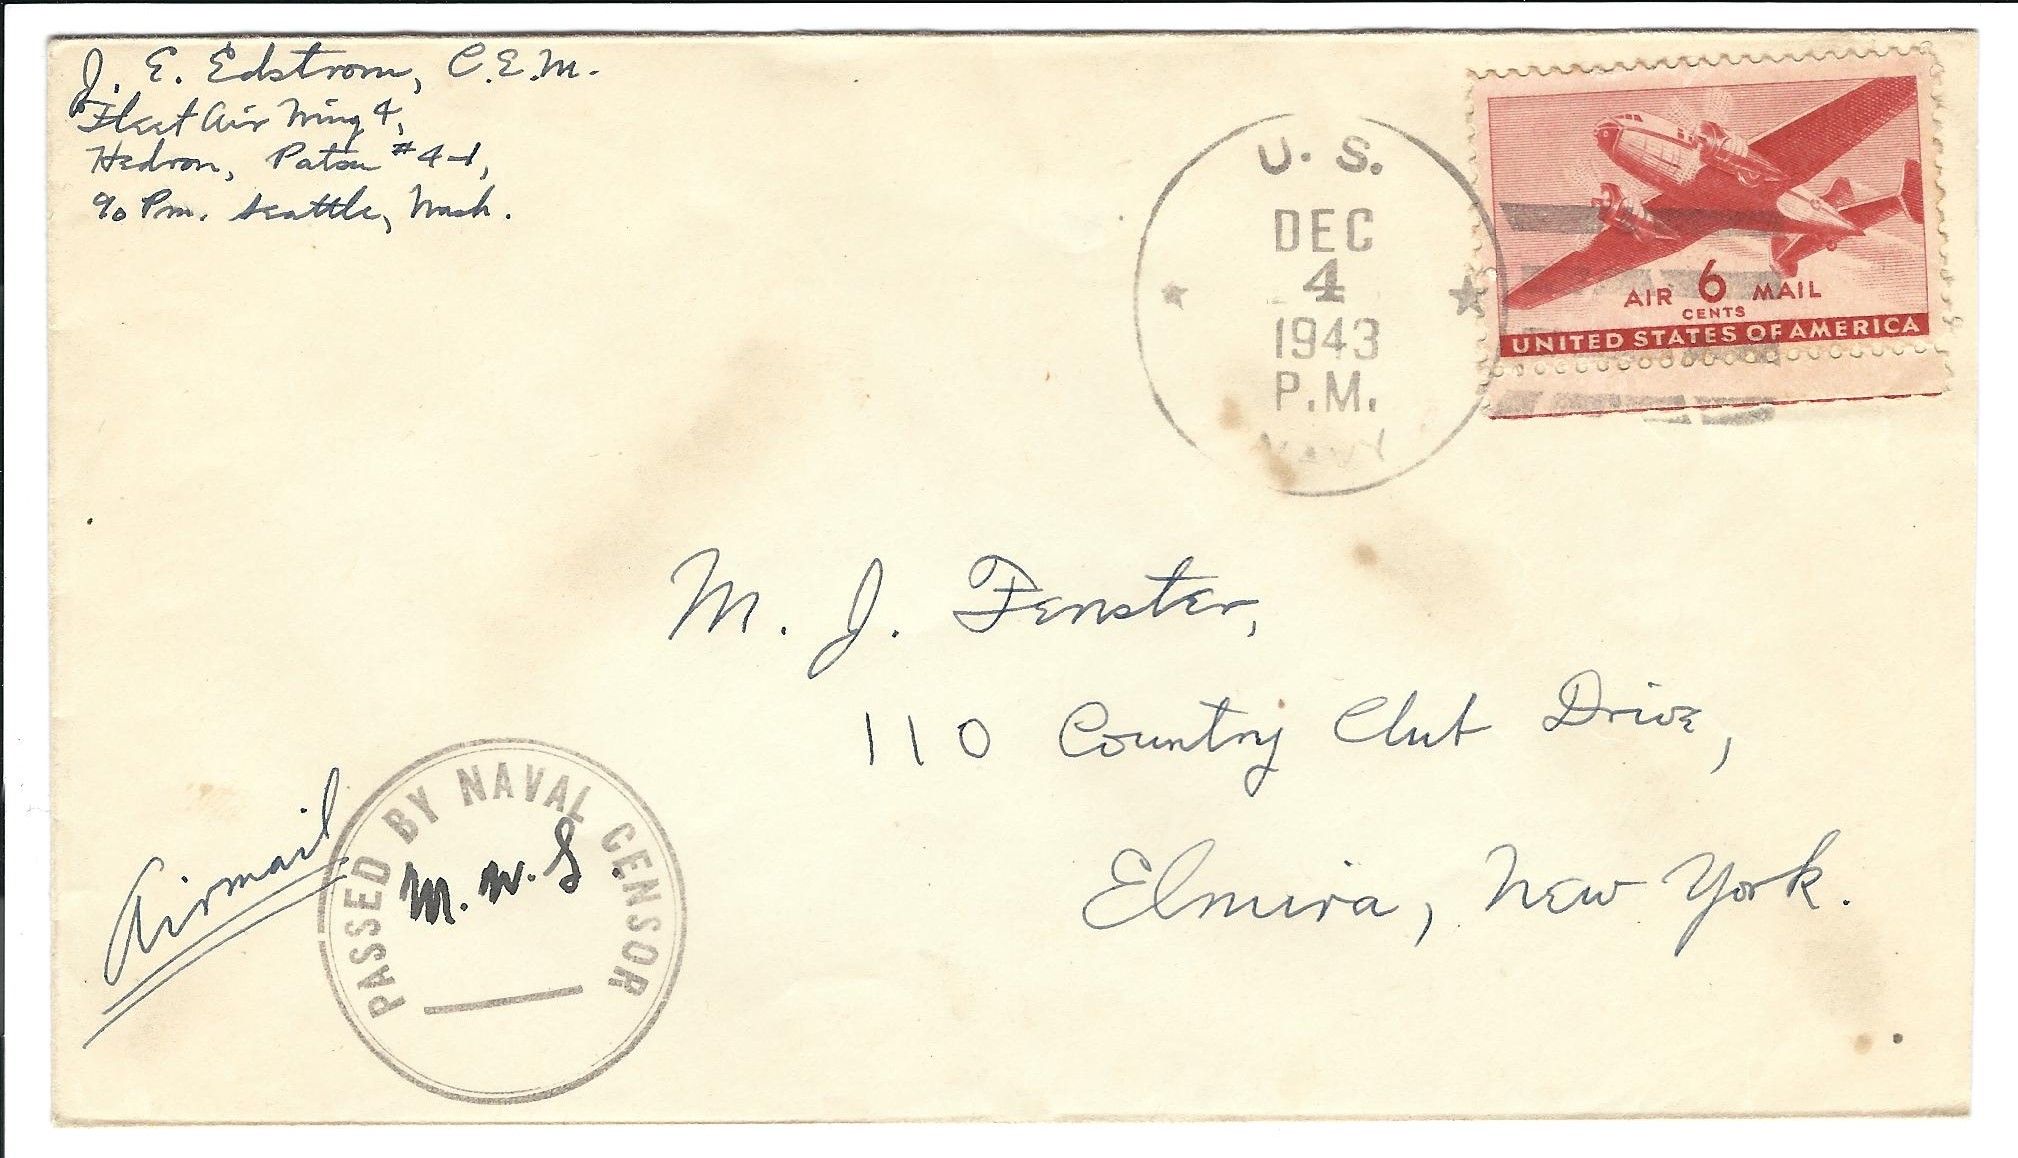 J. E. Edstrom, C.E.M.
Fleet Air Wing 4,
Hedron, Patsu #4-1,
% P.m. Seattle, Wash.
U. S.
DEC
4
1943
P.M.
NAVY
AIR 6 MAIL
CENTS
UNITED STATES OF AMERICA
M. J. Fenster,
110 Country Club Drive,
Elmira, New York.
Airmail
PASSED BY NAVAL CENSOR
M. W. S.